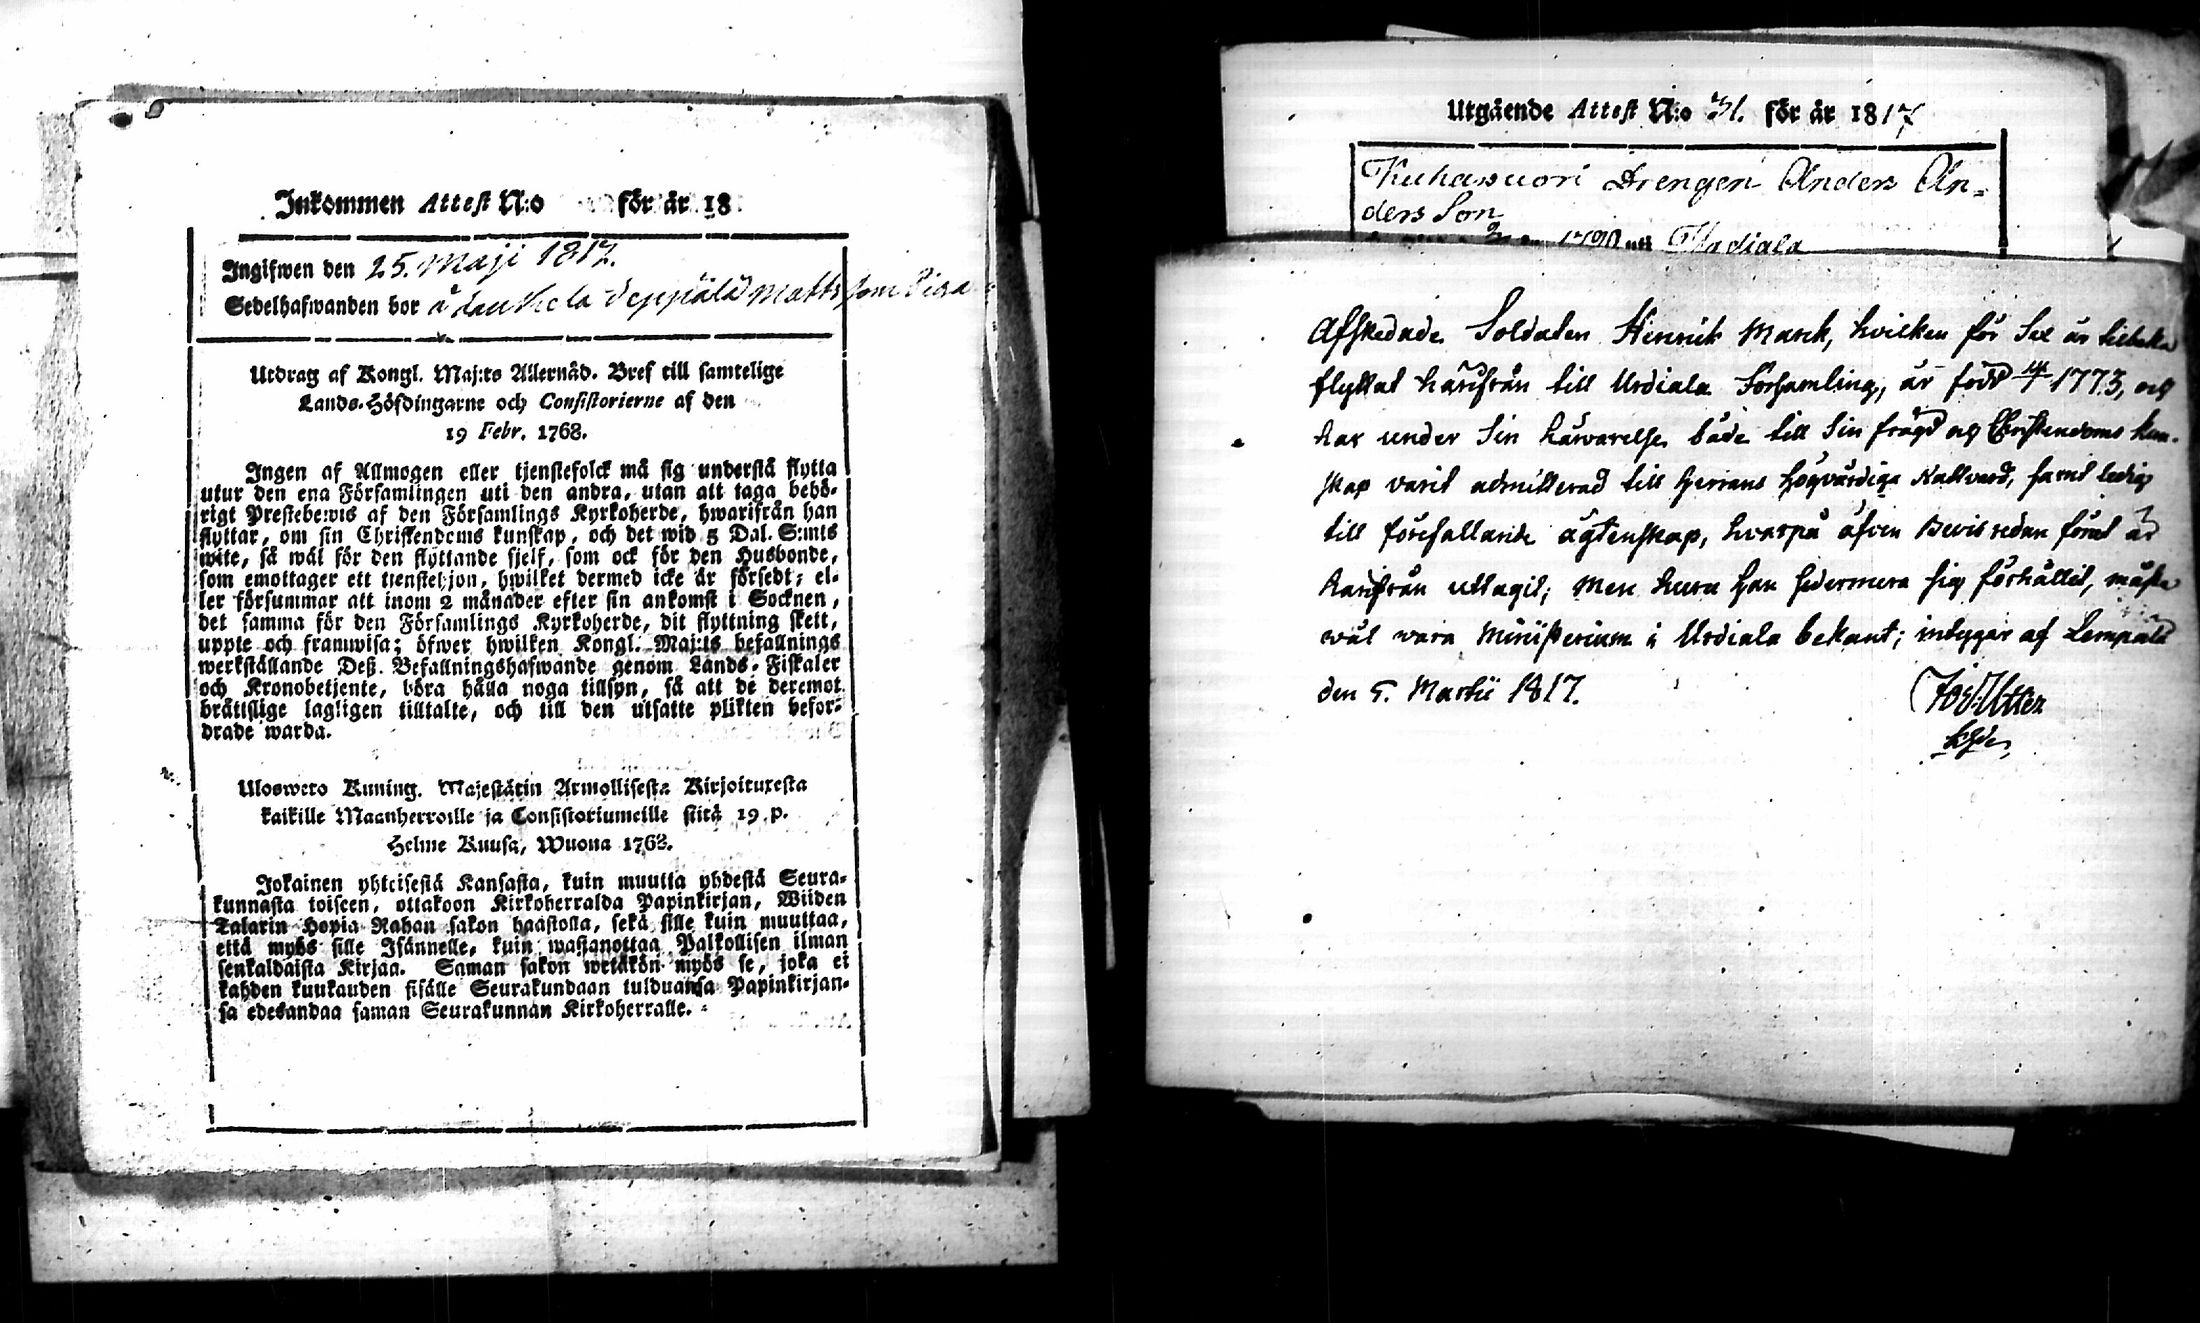 Inkommen Attest N:o för år 18
Ingifwen den 25. Maji 1817.
Sedelhafwanden bor å
Utdrag af Kongl. Maj:ts Allernåd. Bref till samtelige
Lands-Höfdingarne och Consistorierne af den
19 Febr. 1768.
Ingen af Allmogen eller tjenstefolck må sig understå flytta
utur den ena Församlingen uti den andra, utan att taga behö-
rigt Prestebewis af den Församlings Kyrkoherde, hwarifrån han
flyttar, om sin Christendoms kunskap, och det wid 5 Dal. S:mts
wite, så wäl för den flyttande sjelf, som ock för den Husbonde,
som emottager ett tienstehjon, hwilket dermed icke är försedt; el-
ler försummar att inom 2 månader efter sin ankomst i Socknen,
det samma för den Församlings Kyrkoherde, dit flyttning skett,
uppte och framwisa; öfwer hwilken Kongl. Maj:ts befallnings
werkställande Deß. Befallningshafwande genom Lands-Fiskaler
och Kronobetjente, böra hålla noga tillsyn, så att de deremot
bråttslige lagligen tilltalte, och till den utsatte plikten befor-
drade warda.
Ulosweto Kuning. Majestätin Armollisesta Kirjoituxesta
kaikille Maanherroille ja Consistoriumeille siitä 19 p.
Helme Kuusa, Wuona 1768.
Jokainen yhteisestä Kansasta, kuin muutta yhdestä Seura-
kunnasta toiseen, ottakoon Kirkoherralda Papinkirjan, Wiiden
Talarin Hopia Rahan sakon haastolla, sekä sille kuin muuttaa,
että myös sille Isännelle, kuin wastanottaa Palkollisen ilman
senkaldaista Kirjaa. Saman sakon wetäkön myös se, joka ei
kahden kuukauden sisälle Seurakundaan tulduansa Papinkirjan-
sa edesandaa saman Seurakunnan Kirkoherralle.
Utgående Attest N:o 31. för år 1817
Kuhasuori Drengen Anders An-
ders Son
uti Urdiala
Afskedade Soldaten Henrik Marck, hvilken för Sex år tilbaka
flyttat härifrån till Urdiala Församling, är född 1773, och
har under Sin härvarelse både till Sin frägd och Christendoms kun-
skap varit admitterad till Herrans Högvärdiga Nattvard, samt ledig
till förefallande ägtenskap, hvarpå äfven Bevis redan förut är
härifrån uttagit; Men huru han sedermera sig förhållit, måste
wäl wara Ministerium i Urdiala bekant; intygar af Lempälä
den 5. Martii 1817.
Jos: Utter